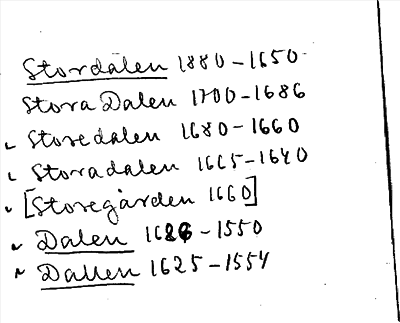 Stordalen 1880-1650
Stora Dalen 1700-1686
Storedalen 1680-1660
Storadalen 1665-1640
[Storegården 1660]
Dalen 1626-1550
Dallen 1625-1554